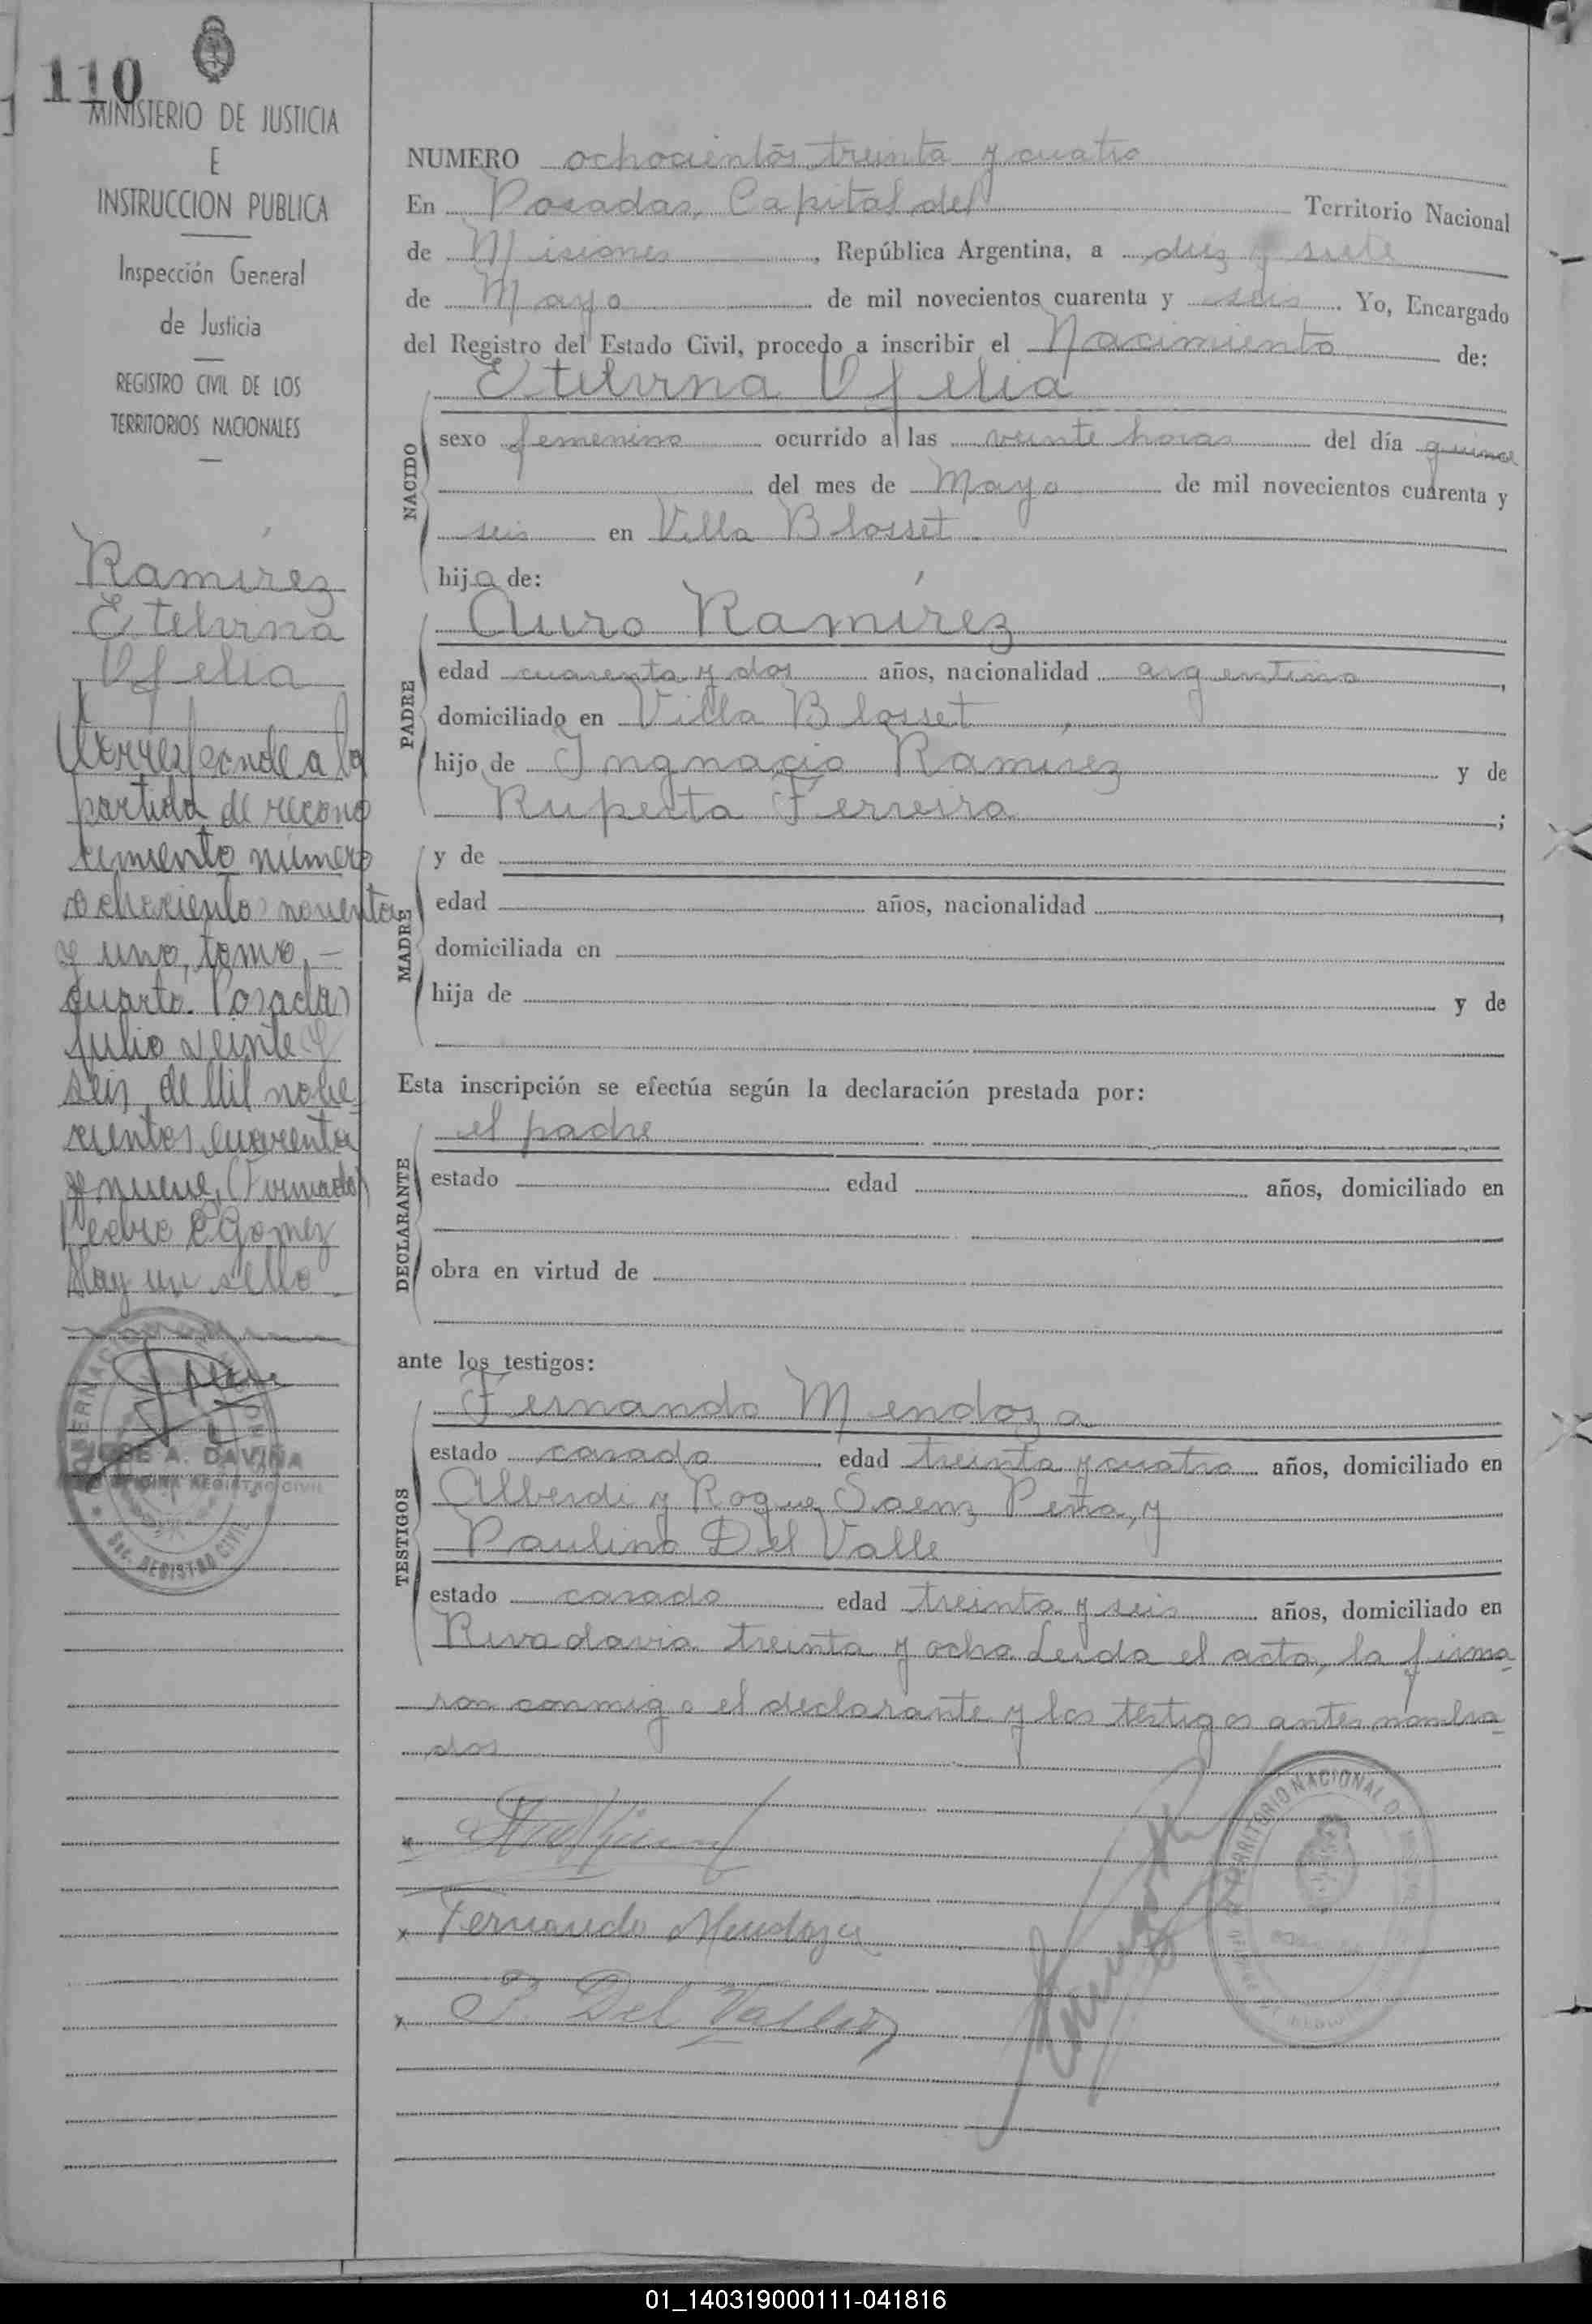 110
MINISTERIO DE JUSTICIA
E
INSTRUCCION PUBLICA
Inspección General
de Justicia
REGISTRO CIVIL DE LOS
TERRITORIOS NACIONALES
Ramírez
Etelvina
Ofelia
Corresponde a la
partida de recono
cimiento número
ochociento noventa
y uno, tomo, –
cuarto. Posadas
Julio veinte y
seis de Mil nove-
cientos cuarenta
y nueve, (Firmado)
Pedro E Gomez
Hay un sello
JOSE A. DAVIÑA
OFICINA REGISTRO CIVIL
REGISTRO CIVIL
NUMERO ochocientos treinta y cuatro
En Posadas, Capital del Territorio Nacional
de Misiones, República Argentina, a diez y siete
de Mayo de mil novecientos cuarenta y seis. Yo, Encargado
del Registro del Estado Civil, procedo a inscribir el Nacimiento de:
Etelvina Ofelia
NACIDO
sexo femenino ocurrido a las veinte horas del día quince
del mes de Mayo de mil novecientos cuarenta y
seis en Villa Blosset
hija de:
PADRE
Auro Ramírez
edad cuarenta y dos años, nacionalidad argentino,
domiciliado en Villa Blosset,
hijo de Ingnacio Ramirez y de
Ruperta Ferreira;
MADRE
y de
edad años, nacionalidad,
domiciliada en
hija de y de
Esta inscripción se efectúa según la declaración prestada por:
DECLARANTE
el padre
estado edad años, domiciliado en
obra en virtud de
ante los testigos:
TESTIGOS
Fernando Mendoza
estado casado edad treinta y cuatro años, domiciliado en
Alberdi y Roque Saenz Peña, y
Paulino Del Valle
estado casado edad treinta y seis años, domiciliado en
Rivadavia treinta y ocho. Leida el acta, la firma-
ron conmigo el declarante y los testigos antes nombra-
dos
TERRITORIO NACIONAL D
x
x Fernando Mendoza
x P. Del Valle
01_140319000111-041816